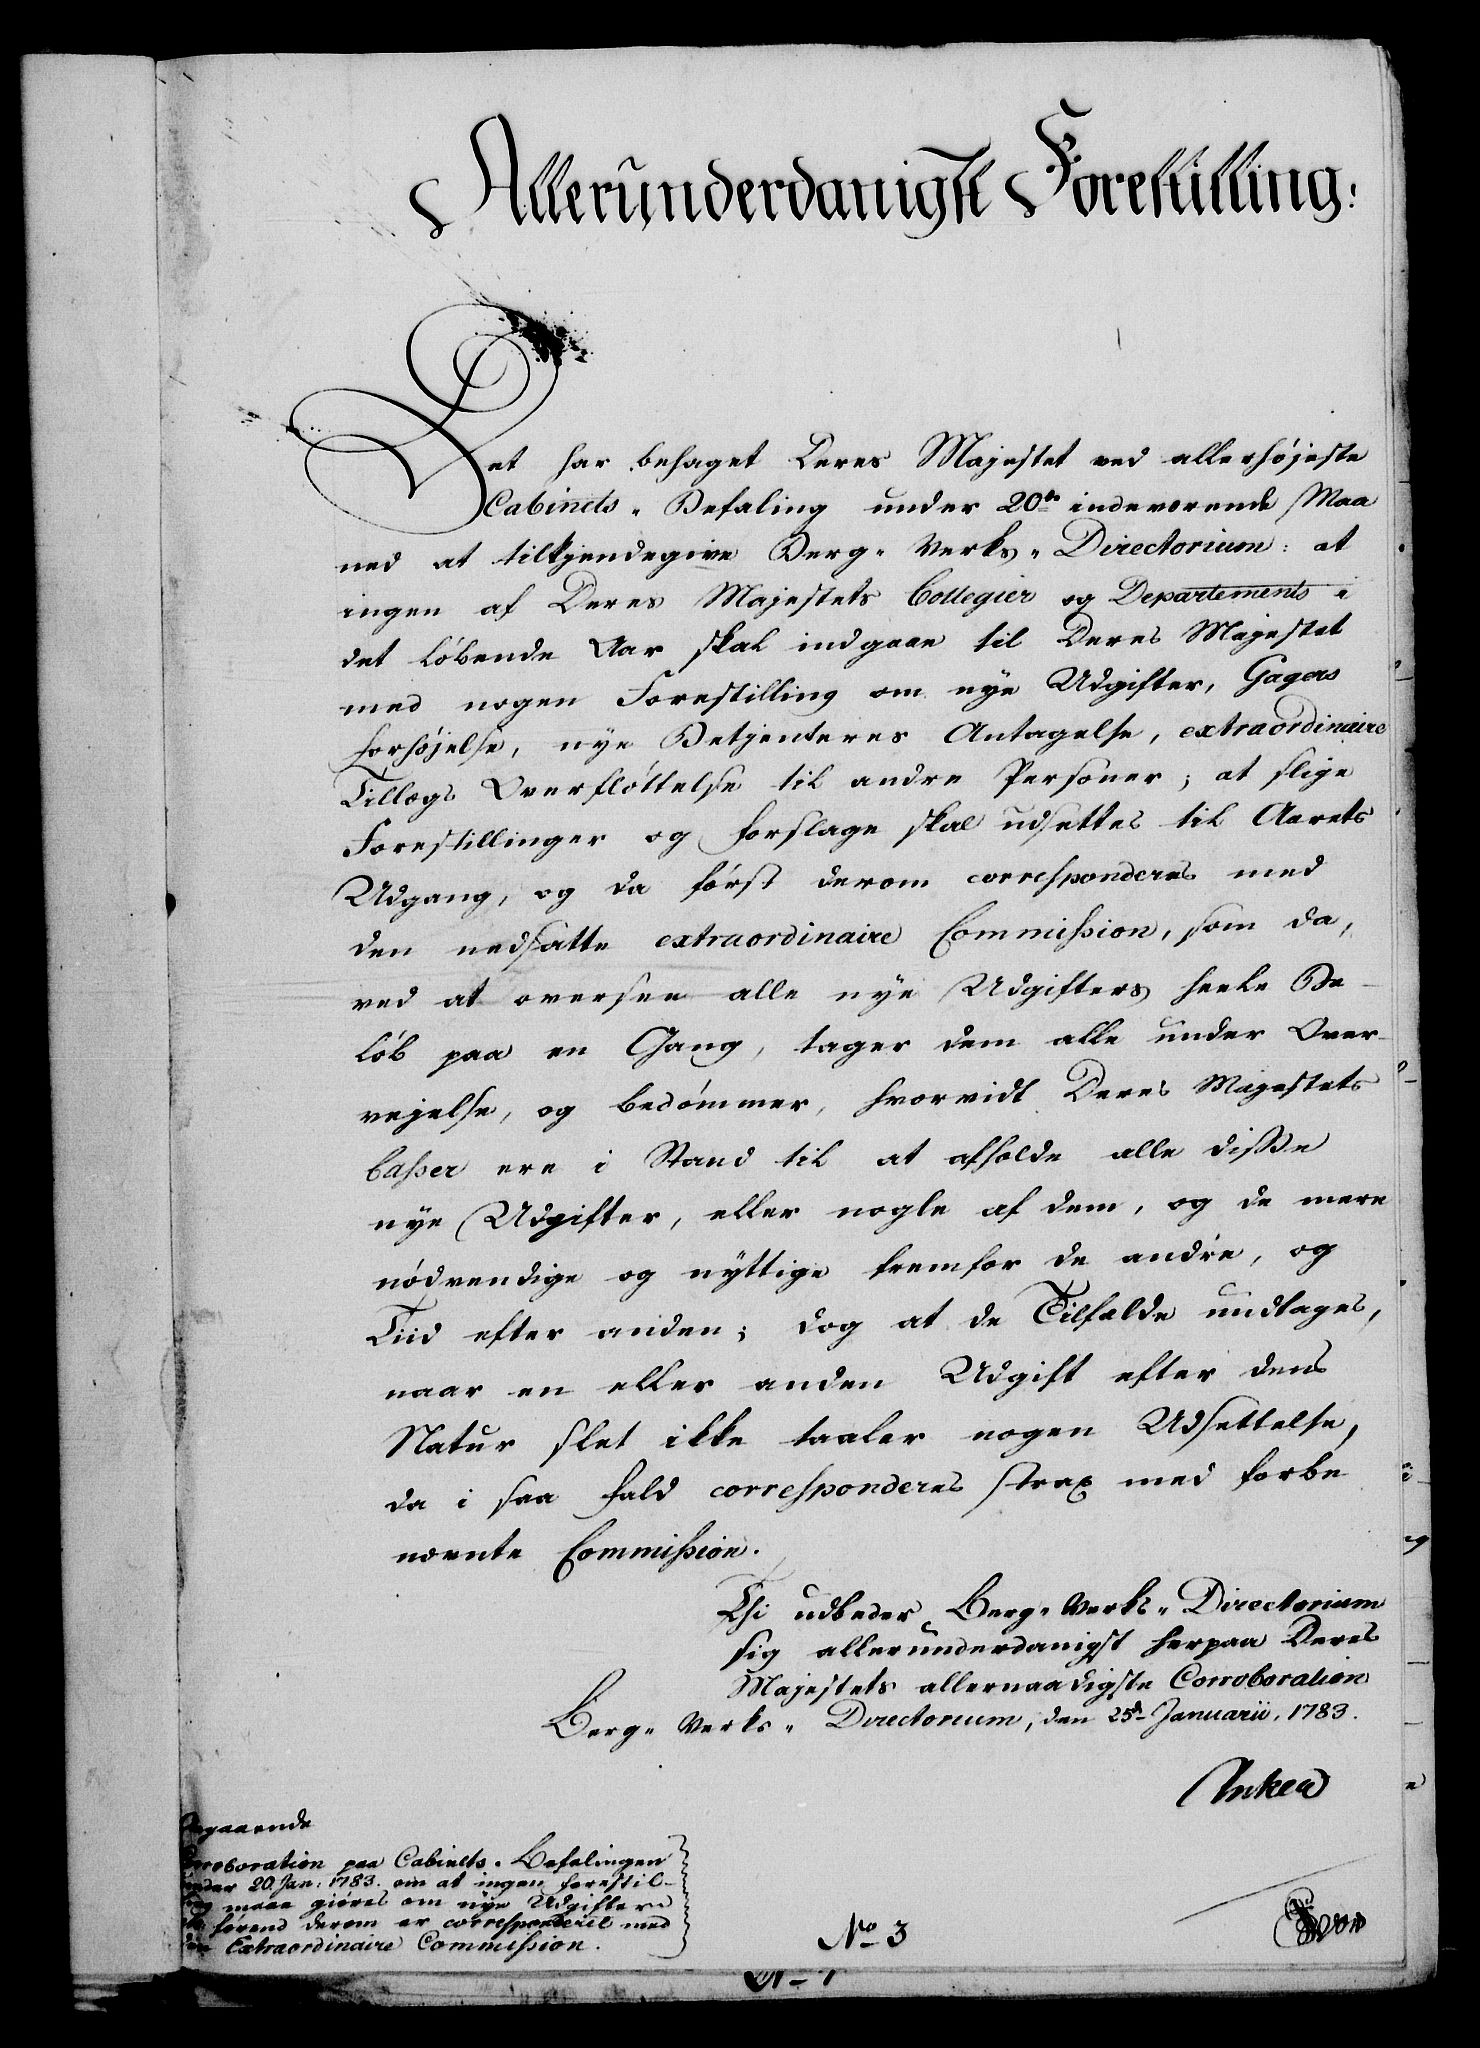 Allerunderdanigst Forestilling:
Det har behaget Deres Majestet ved allerhøjeste
Cabinets- Befaling under 20de indeværende Maa
ned at tilkjendegive Berg- Verks- Directorium: at
ingen af Deres Majestets Collegier og Departements i
det løbende Aar skal indgaae til Deres Majestet
med nogen Forestilling om nye Udgifter, Gagers
Forhøjelse, nye Betjenteres Antagelse, extraordinaire
Tillægs Overfløttelse til andre Personer; at slige
Forestillinger og Forslage skal udsættes til Aarets
Udgang, og da først derom corresponderes med
den nedsatte extraordinaire Commission, som da,
ved at oversee alle nye Udgifters heele Be-
løb paa en Gang, tager dem alle under Over-
vejelse, og bedømmer, hvorvidt Deres Majestets
Casser ere i Stand til at afholde alle disse
nye Udgifter, eller nogle af dem, og de mere
nødvendige og nyttige fremfor de andre, og
Tiid efter anden; dog at de Tilfælde undtages,
naar en eller anden Udgift efter dens
Natur slet ikke taaler nogen Udsættelse,
da i saa Fald corresponderes strax med forbe
nævnte Commission.
Thi udbeder Berg- Verks- Directorium
sig allerunderdanigst herpaa Deres
Majestets allernaadigste Corroboration
Berg- Verks- Directorium, den 25de Januarii, 1783.
Anker
Angaaende
Corroboration paa Cabinets- Befalingen
under 20. Jan: 1783. om at ingen Forestil-
ling maae giøres om nye Udgifter
førend derom er corresponderet med
den Extraordinaire Commission.
No 3